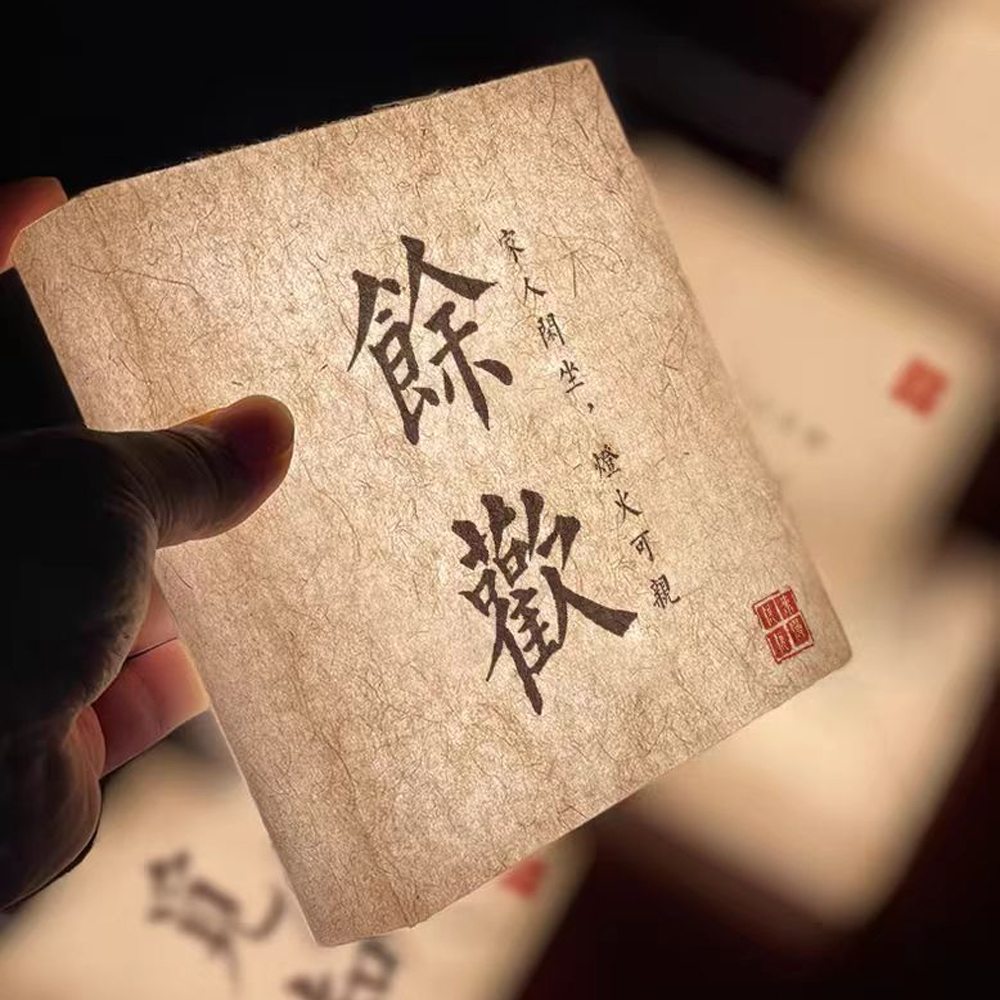 餘歡
家人閑坐，燈火可親